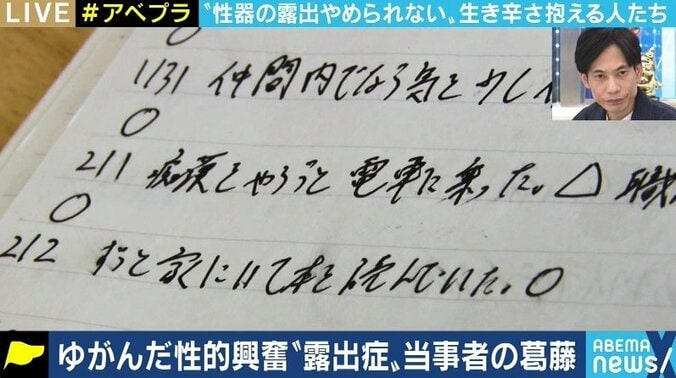 LIVE #アベプラ 〝性器の露出やめられない〟生き辛さ抱える人たち
1/31 仲間内でなら気を少し
○
2/1 痴漢をやろうと電車に乗った。△ 職
○
2/2 ずっと家にいて本を読んでいた。○
ゆがんだ性的興奮〝露出症〟当事者の葛藤
ABEMA
NEWS/